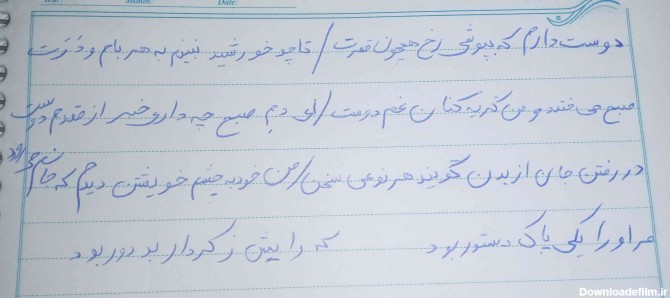 Month: Date:
دوست دارم که بپوشی رخ همچون قمرت / تا چو خورشید نبینم به هر بام و درت
صبح می خندد و من گریه کنان غم دوست / ای دم صبح چه داری خبر از مقدم دوست
در رفتن جان از بدن گویند هر نوعی سخن / من خود به چشم خویشتن دیدم که جانم میرود
مر او را یکی پاک دستور بود که رایش ز کردار بد دور بود
Downloadefilm.ir